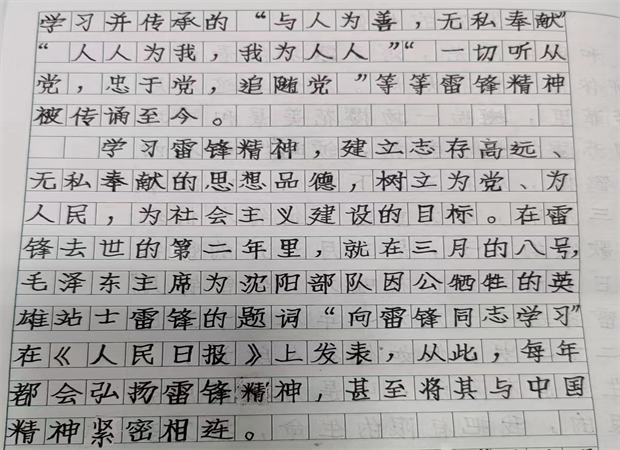 学习并传承的“与人为善，无私奉献”
“人人为我，我为人人”“一切听从
党，忠于党，追随党”等等雷锋精神
被传诵至今。
学习雷锋精神，建立志存高远、
无私奉献的思想品德，树立为党、为
人民，为社会主义建设的目标。在雷
锋去世的第二年里，就在三月的八号，
毛泽东主席为沈阳部队因公牺牲的英
雄站士雷锋的题词“向雷锋同志学习”
在《人民日报》上发表，从此，每年
都会弘扬雷锋精神，甚至将其与中国
精神紧密相连。